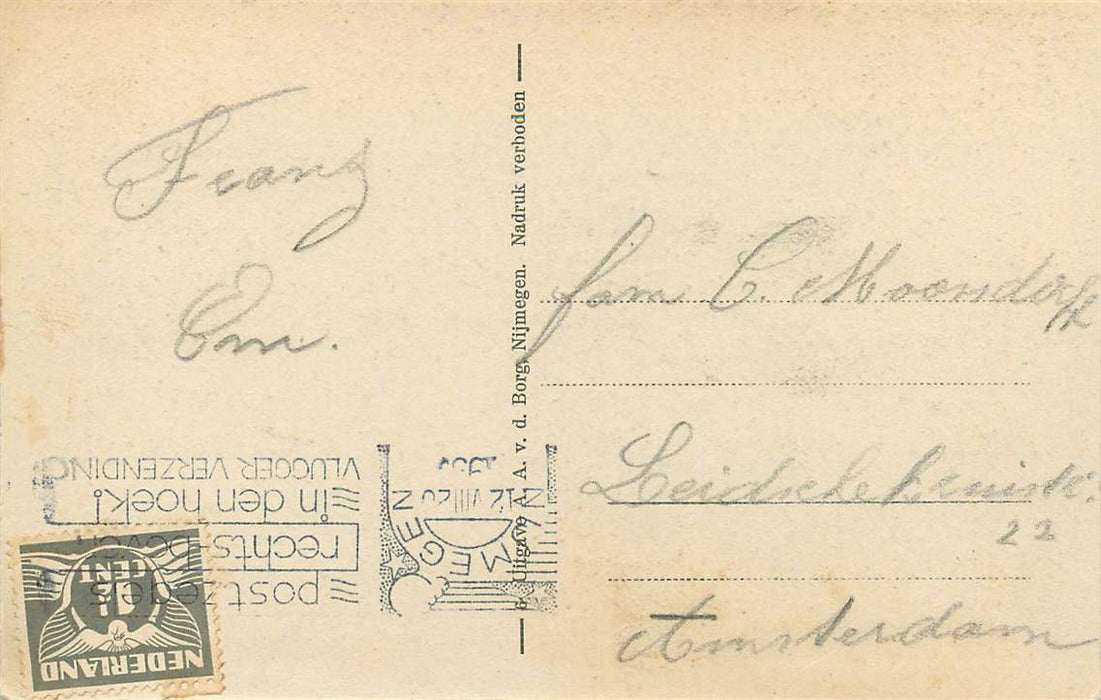 Franz
Em.
fam C. Moonder
Leidschekruisst.
22
Amsterdam
6 Uitgave A. A. v. d. Borg, Nijmegen. Nadruk verboden
postzegels
rechts-boven
in den hoek!
VLUGGER VERZENDING
NIJMEGEN
12 VIII 20
193
NEDERLAND
1½
CENT